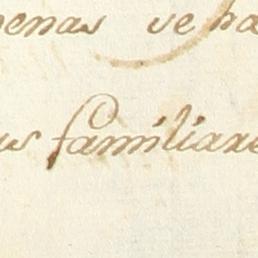 penas se ha
us familiare